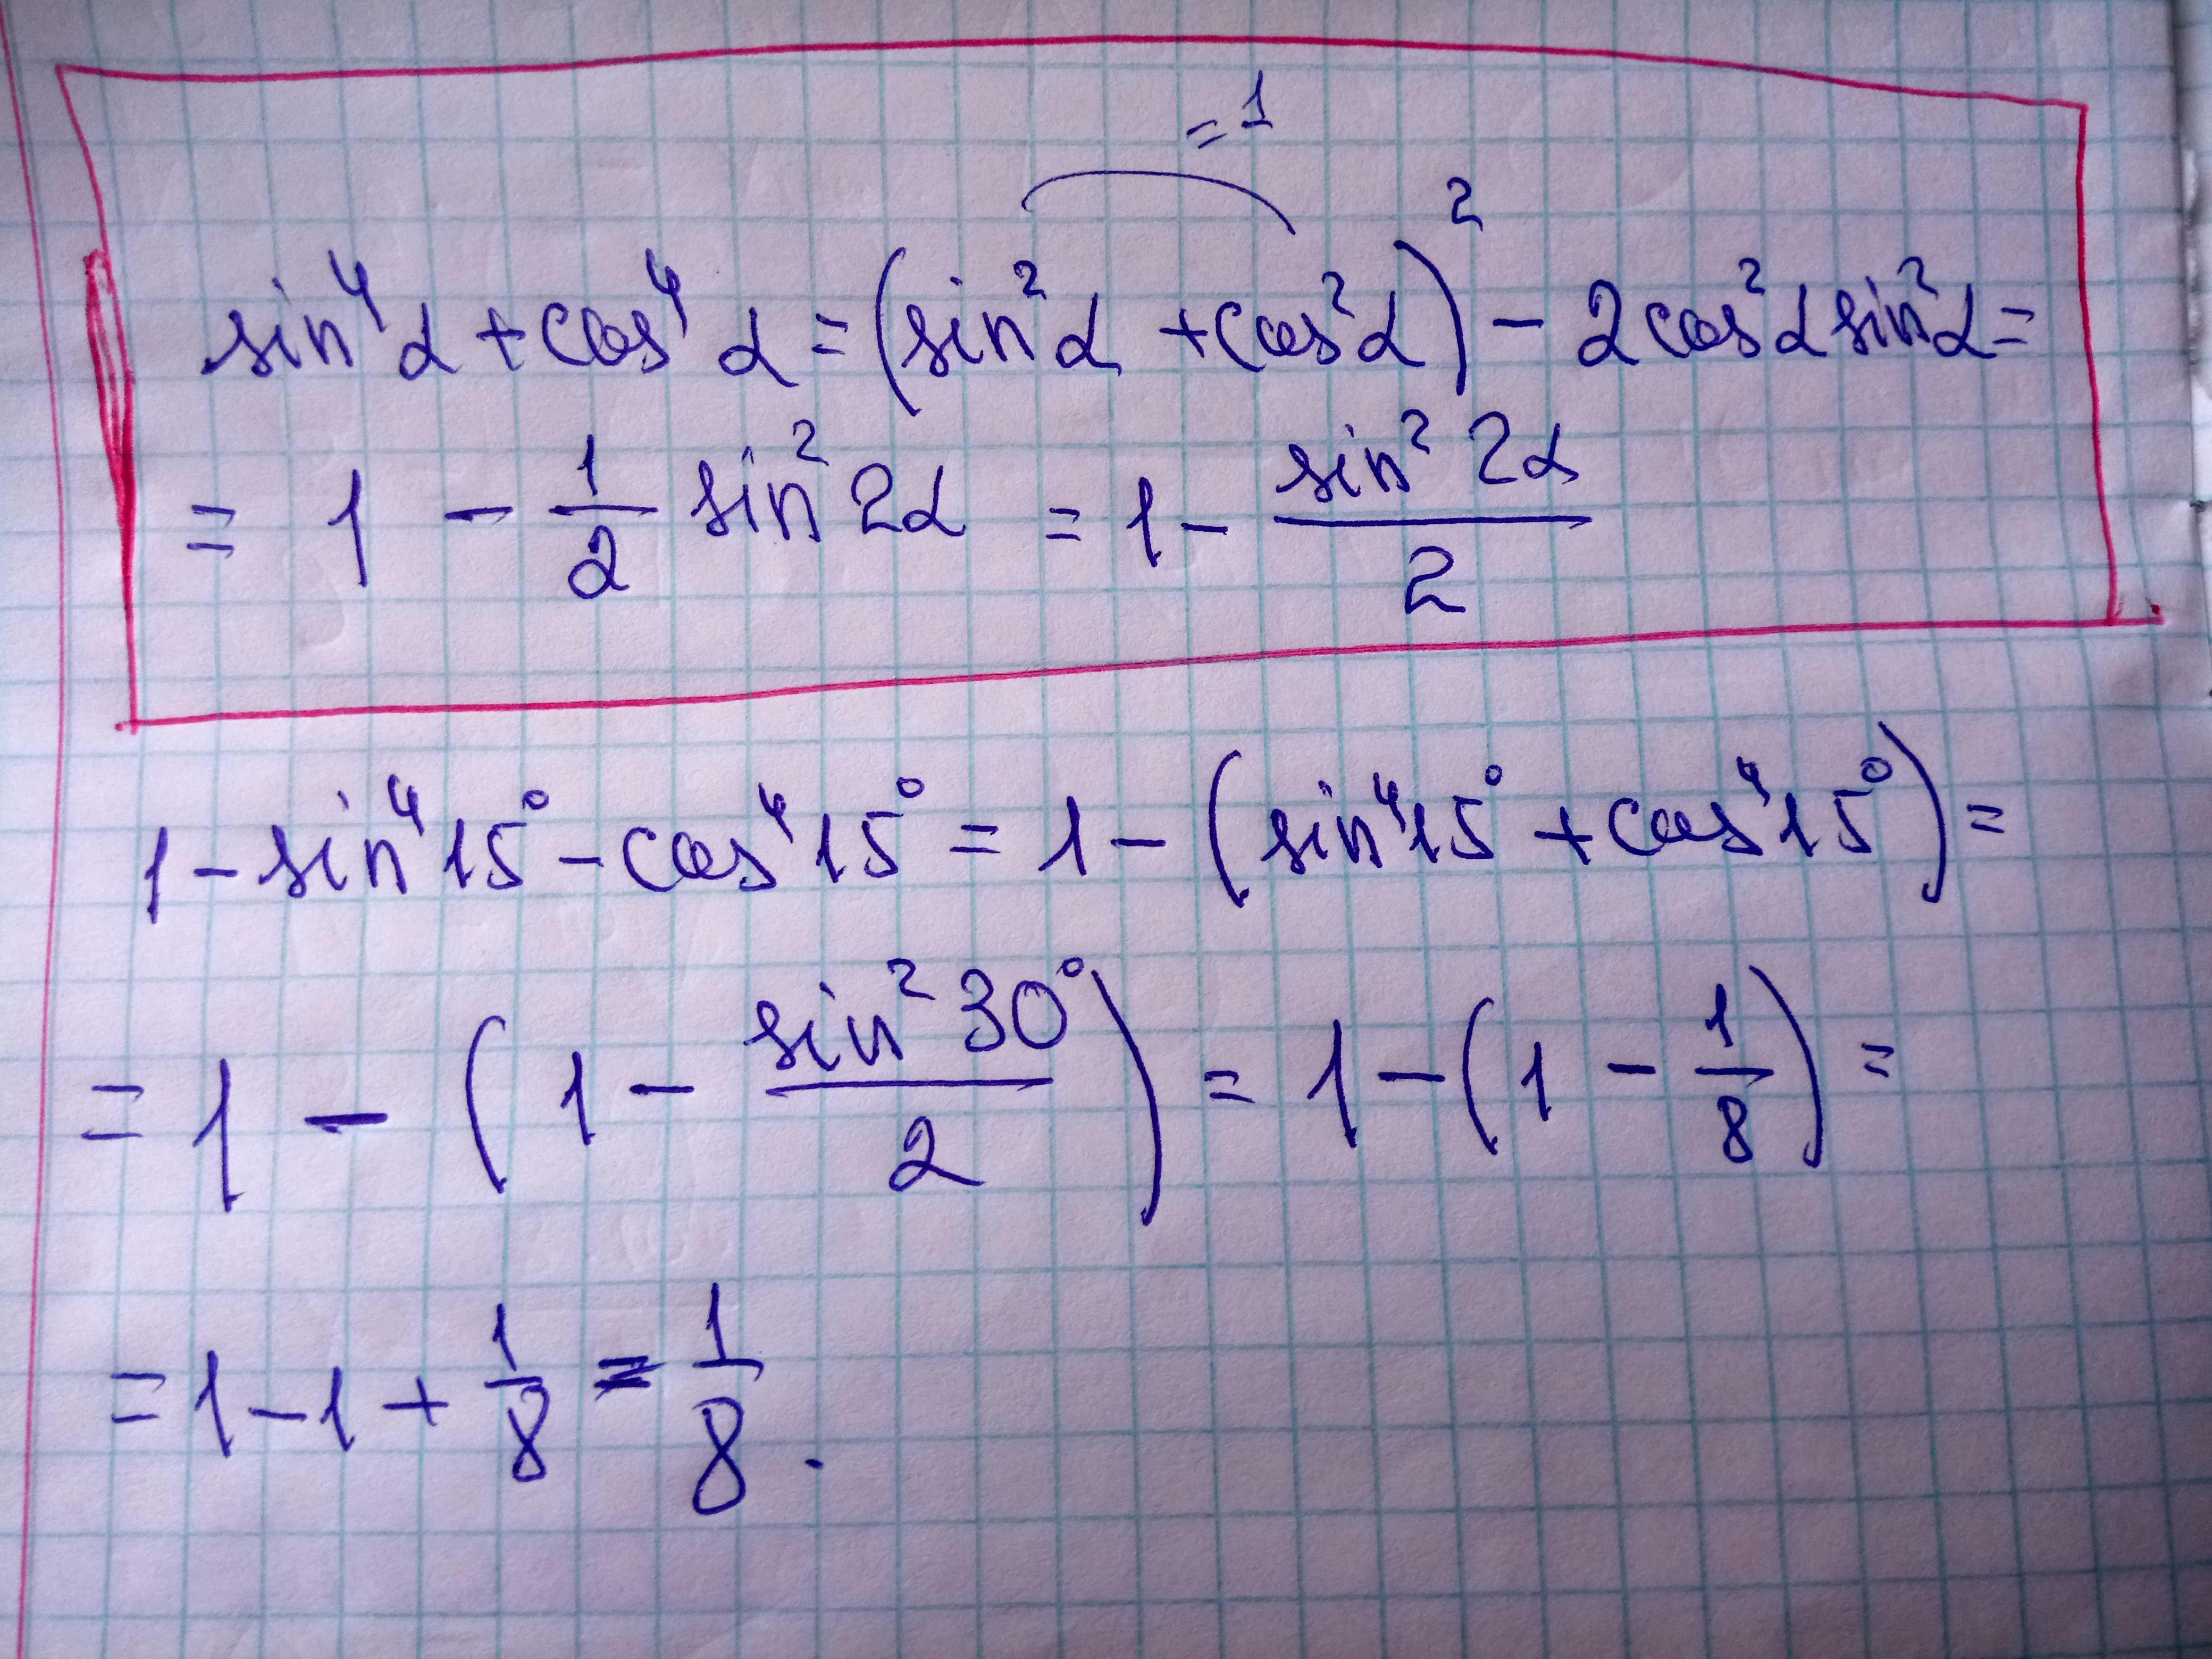 = 1
sin⁴α + cos⁴α = (sin²α + cos²α)² − 2cos²α sin²α =
= 1 − 1/2 sin²2α = 1 − sin²2α/2
1 − sin⁴15° − cos⁴15° = 1 − (sin⁴15° + cos⁴15°) =
= 1 − (1 − sin²30°/2) = 1 − (1 − 1/8) =
= 1 − 1 + 1/8 = 1/8.